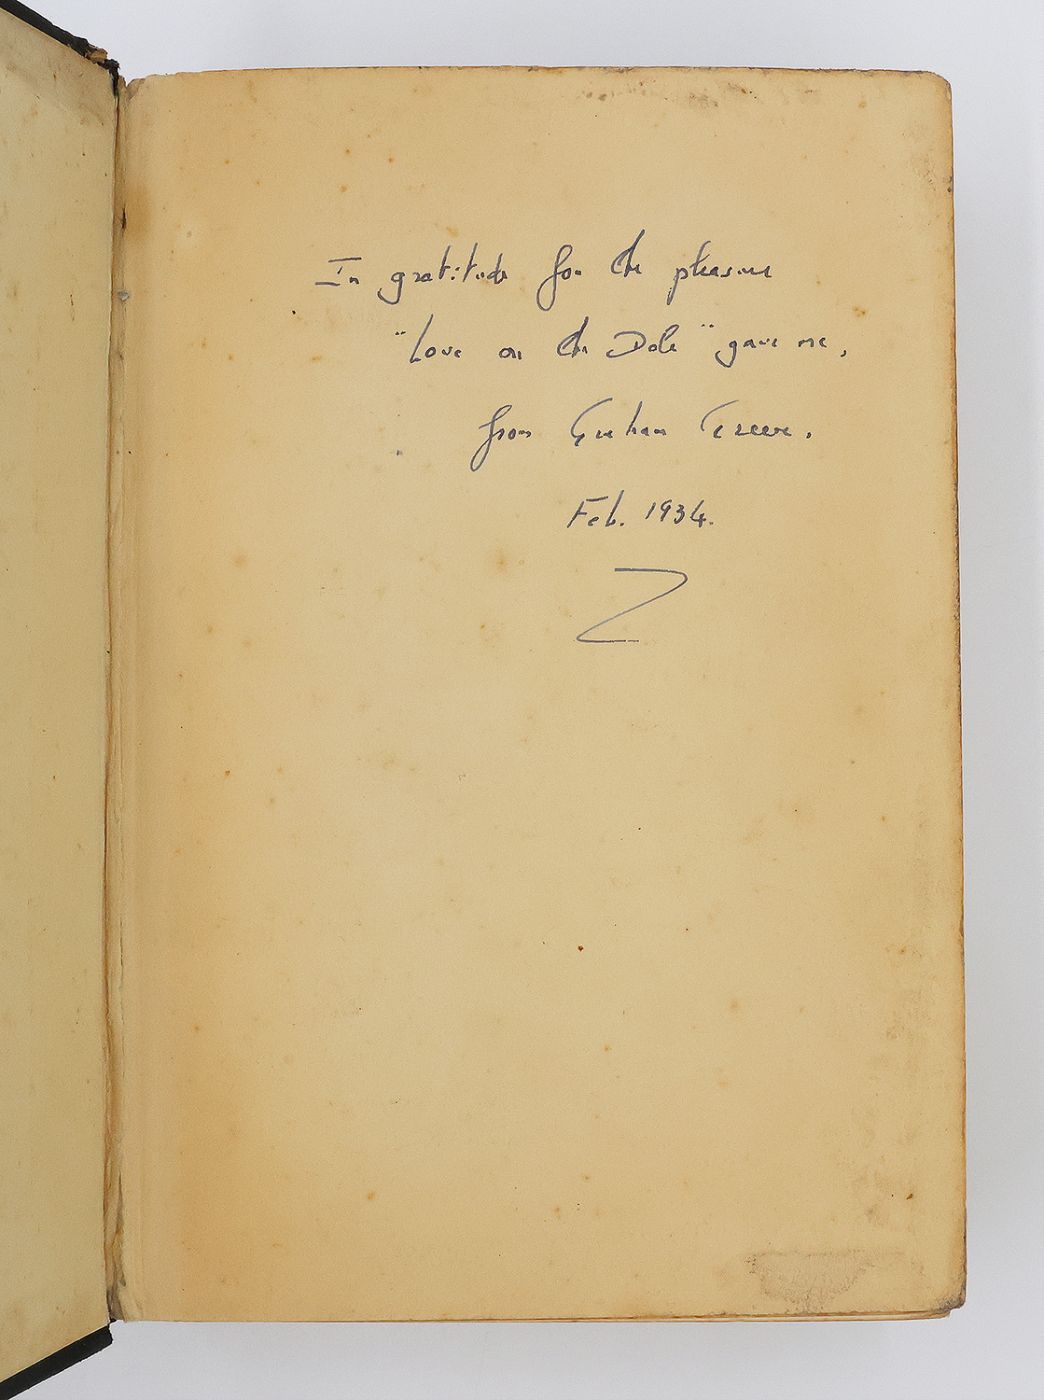 In gratitude for the pleasure
"Love on the Dole" gave me,
from Graham Greene.
Feb. 1934.